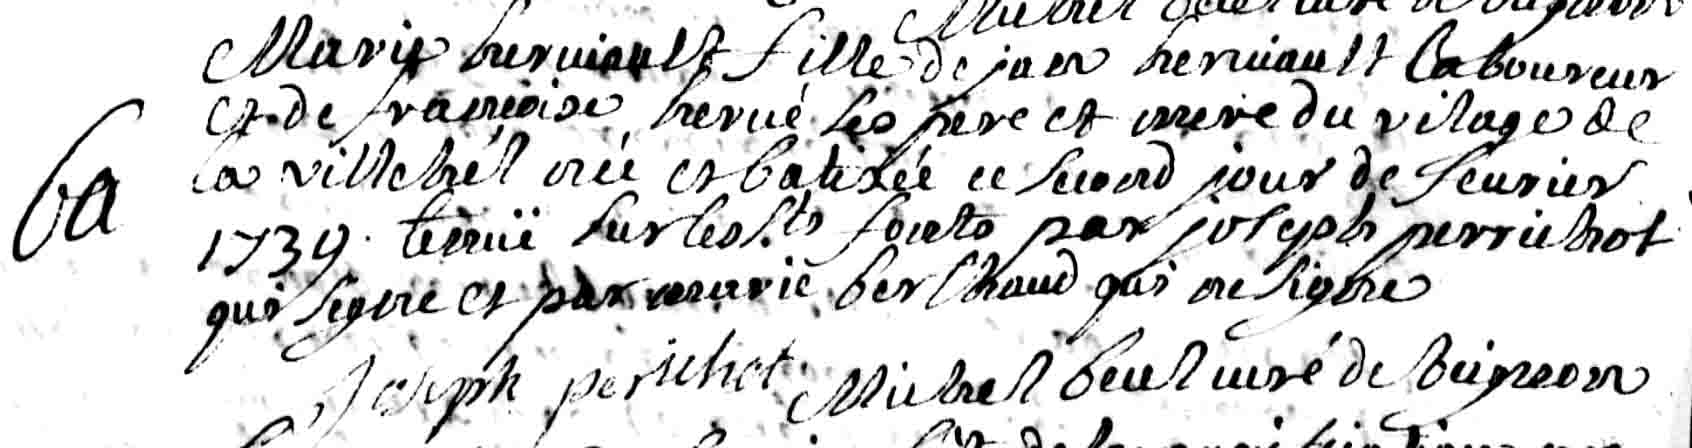 Marie herviault fille de jan herviault Laboureur
et de francoise hervé ses pere et mere du vilage de
la ville hél née et batizée ce second jour de feurier
1739. tenuë sur les Sts fonts par joseph perrichot
qui signe et par marie berthaud qui ne signe
Joseph perichot. Michel beul curé de buignon